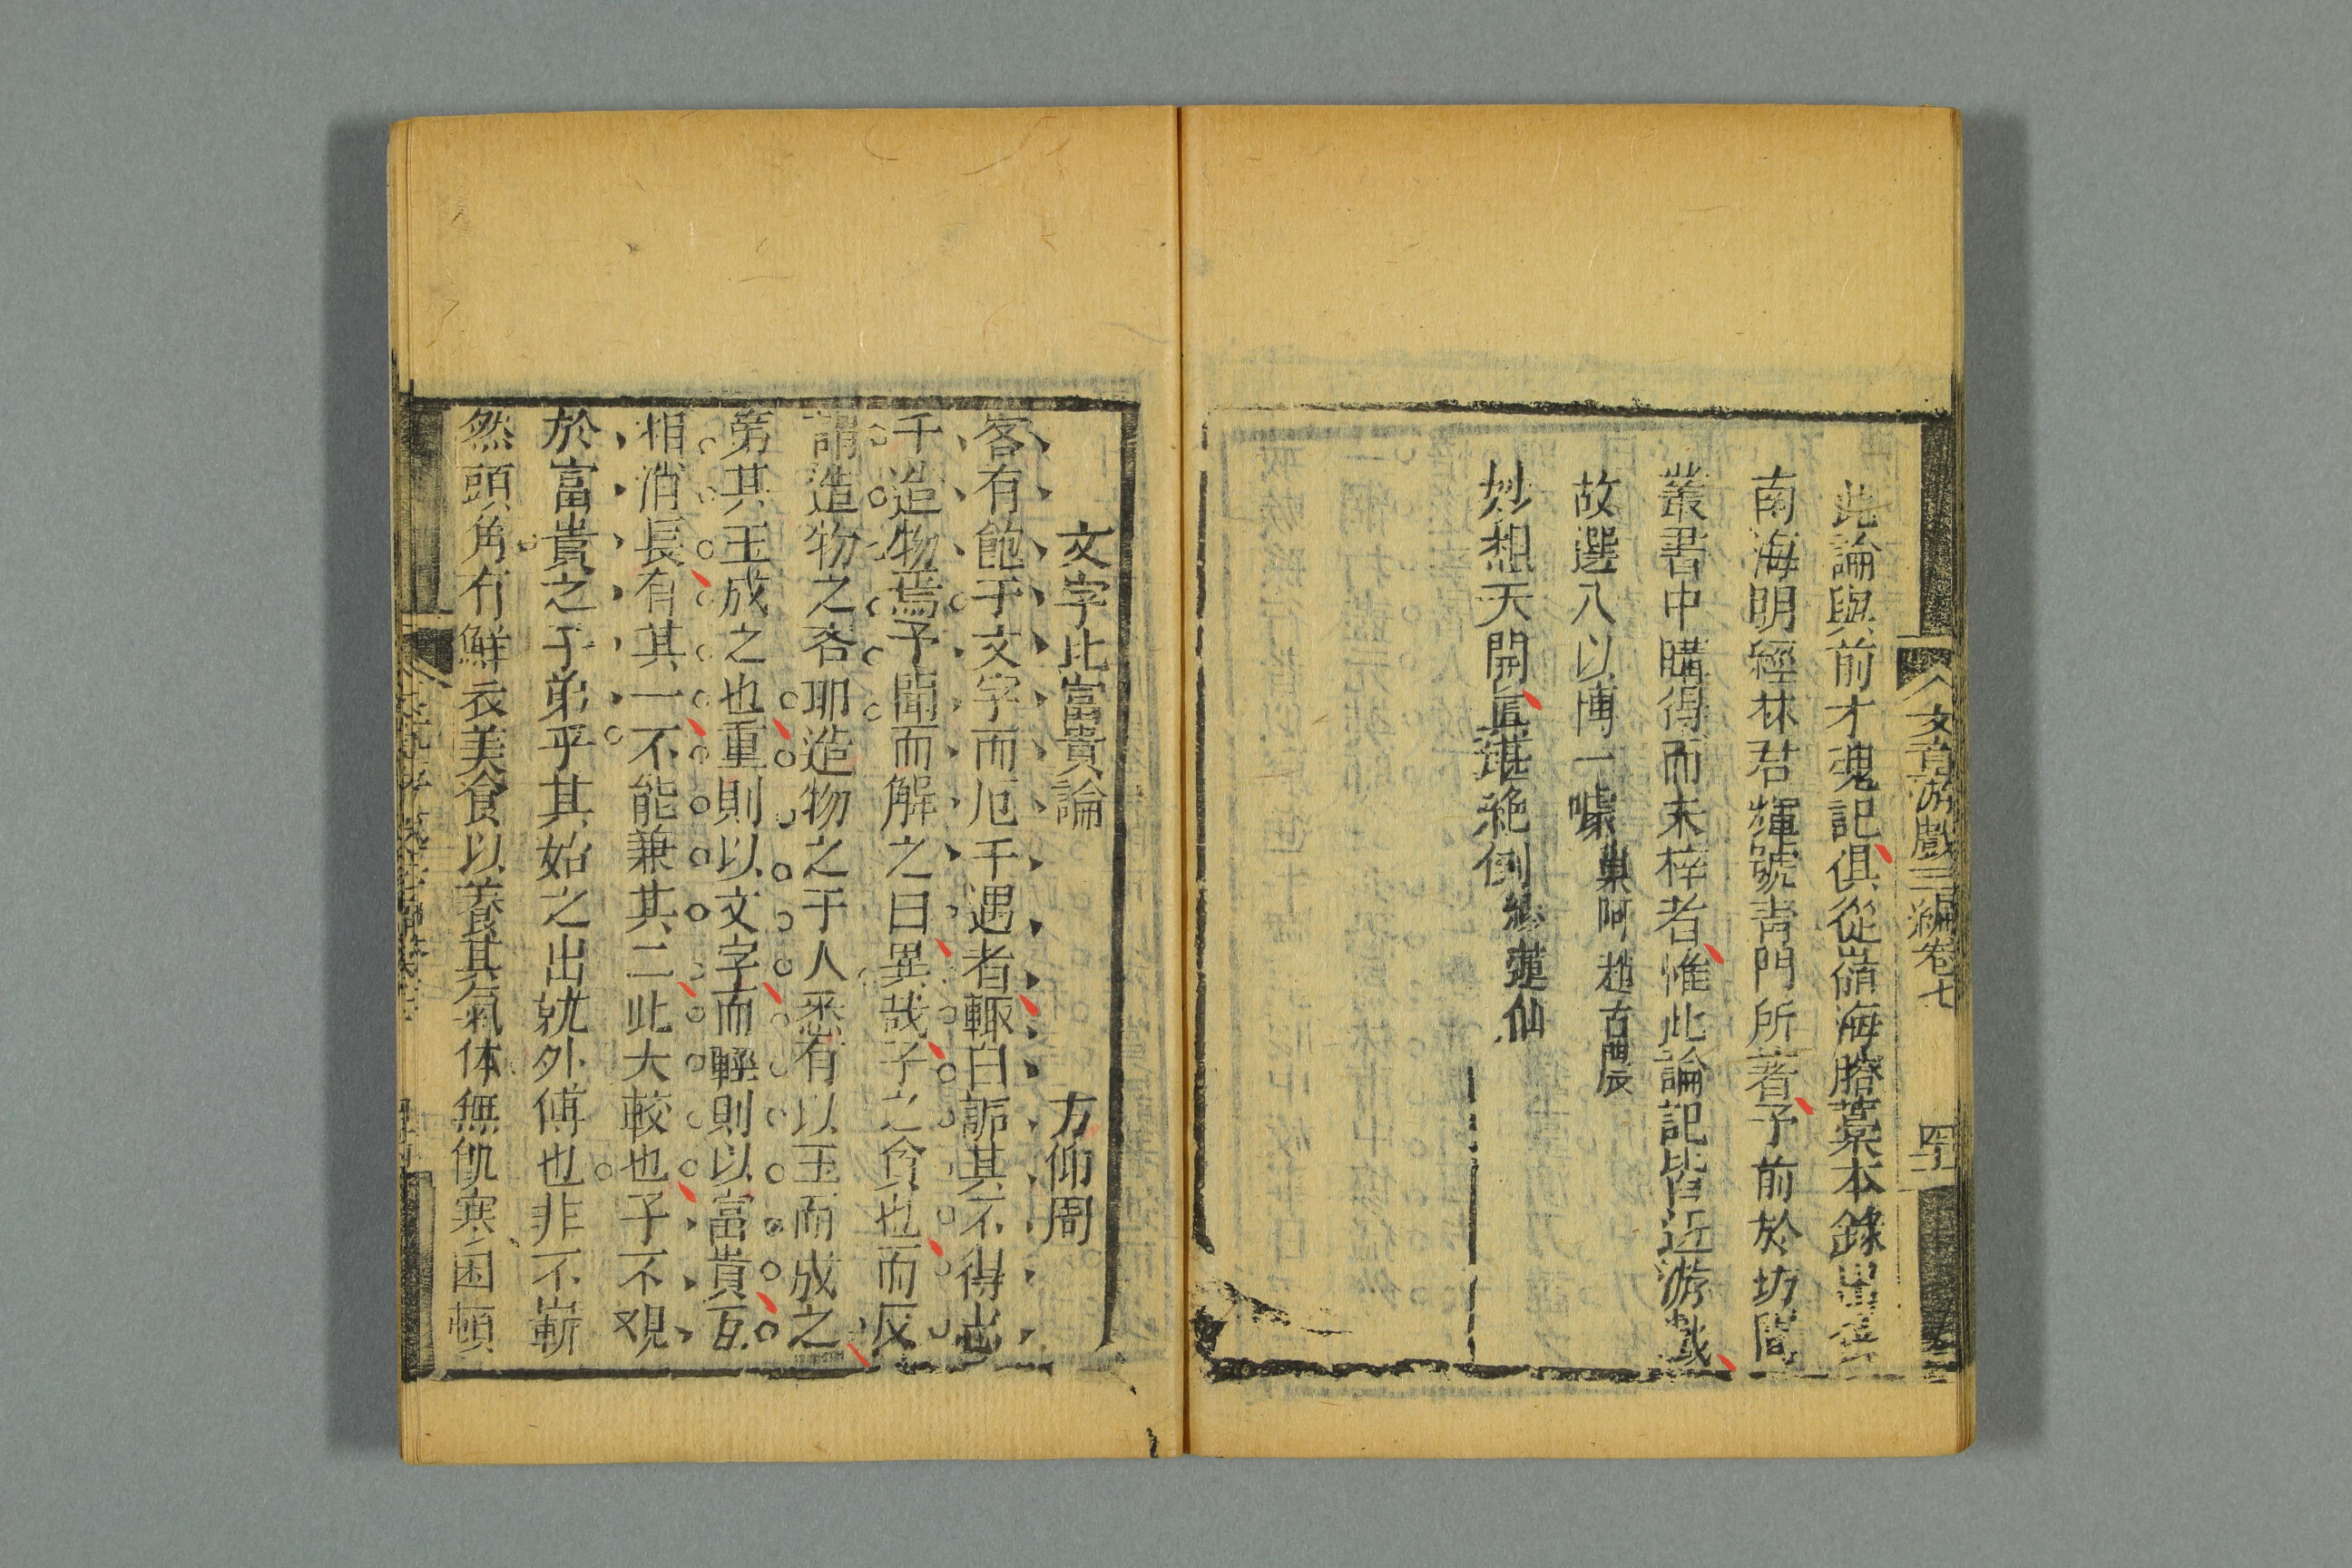 文章游戲三編卷七
此論與前才魂記俱從嶺海賸藁本錄出係
南海明經林君輝號青門所著予前於坊間
叢書中購得而未梓者惟此論記皆近游戲
故選入以博一噱巢阿趙古農
妙想天開真堪絶倒繆蓮仙
文字比富貴論 方仰周
客有飽于文字而厄于遇者輙自訴其不得志
于造物焉予聞而解之曰異哉子之貪也而反
謂造物之吝耶造物之于人悉有以玉而成之
第其玉成之也重則以文字而輕則以富貴互
相消長有其一不能兼其二此大較也子不观
於富貴之子弟乎其始之出就外傅也非不嶄
然頭角有鮮衣美食以養其氣体無飢寒困頓